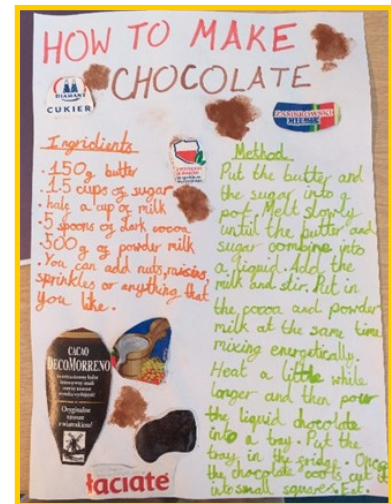 HOW TO MAKE
CHOCOLATE
DIAMANT
CUKIER
Ingridients
. 150g butter
. 1.5 cups of sugar
. half a cup of milk
. 5 spoons of dark cocoa
. 500g of powder milk
. You can add nuts, raisins,
sprinkles or anything that
you like.
Method
Put the butter and
the sugar into a
pot. Melt slowly
until the butter and
sugar combine into
a liquid. Add the
milk and stir. Put in
the cocoa and powder
milk at the same time
mixing energetically.
Heat a little while
longer and then pour
the liquid chocolate
into a tray. Put the
tray in the fridge. Once
the chocolate cools, cut
into small squares. Eat.
CACAO
DECOMORRENO
Oryginalne
zawsze
z wiatrakiem!
Łaciate